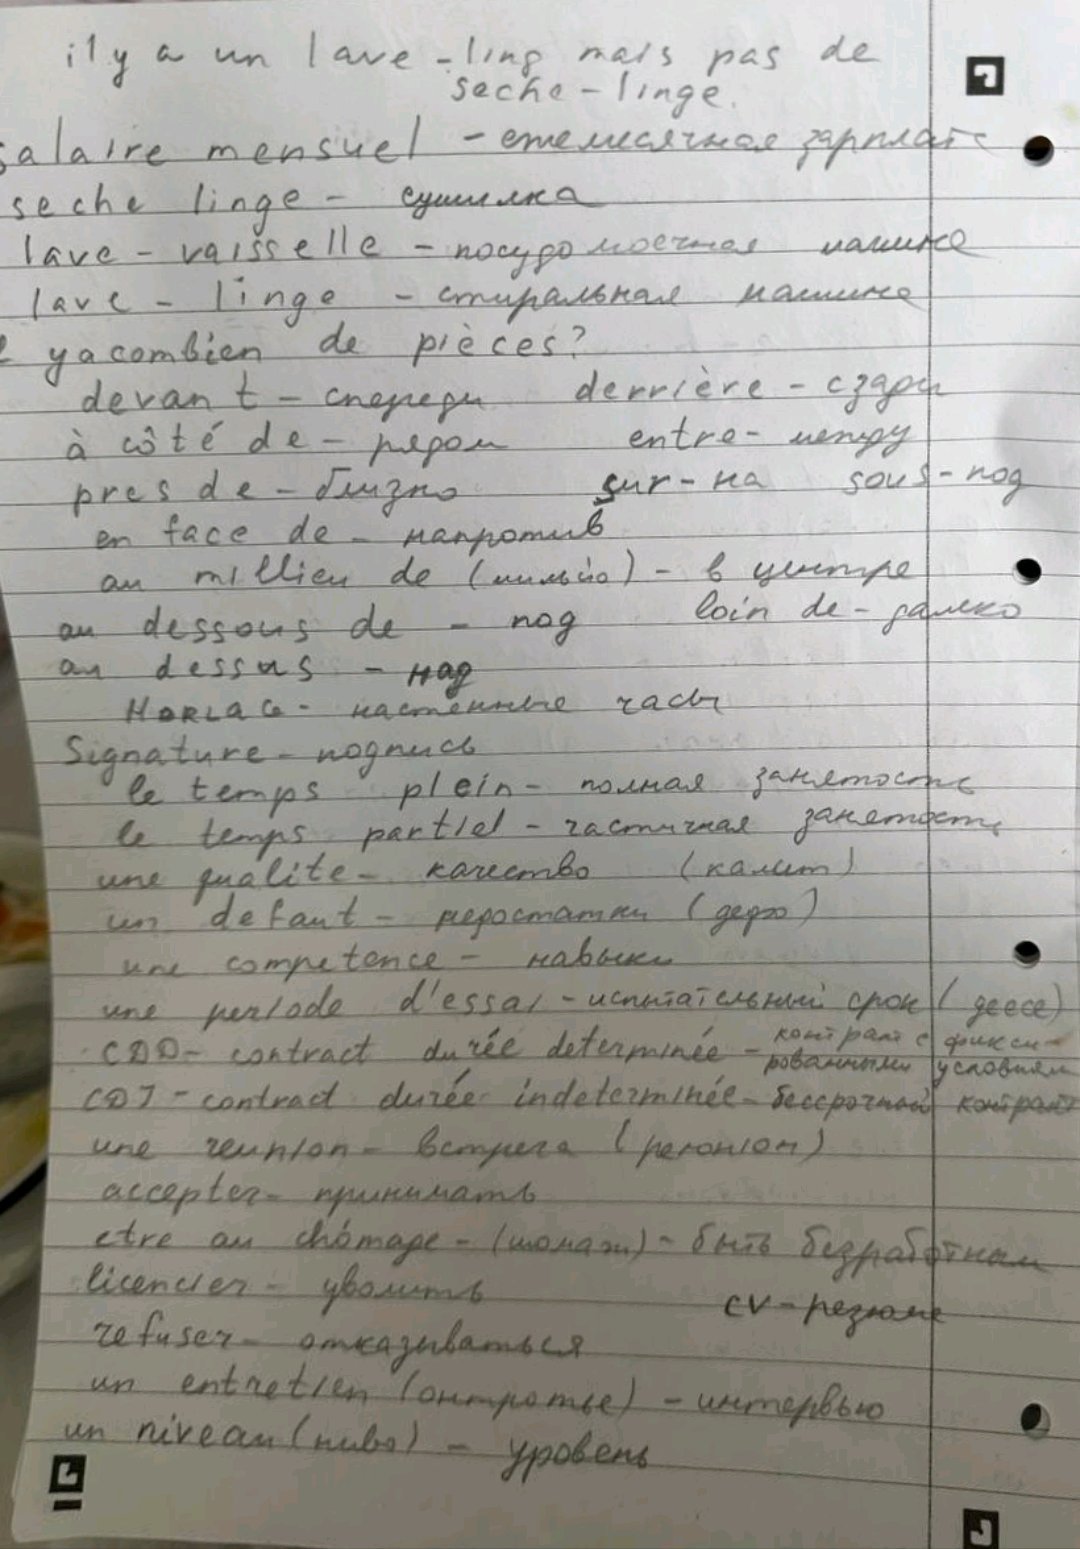 il y a un lave-ling mais pas de
seche-linge.
salaire mensuel - ежемесячная зарплата
seche linge - сушилка
lave-vaisselle - посудомоечная машина
lave-linge - стиральная машина
ya combien de pièces?
devant - спереди derrière - сзади
à côté de - рядом entre - между
pres de - близко sur - на sous - под
en face de - напротив
au millieu de (мильйо) - в центре
au dessous de - под loin de - далеко
au dessus - над
настенные часы
Signature - подпись
le temps plein - полная занятость
le temps partiel - частичная занятость
une qualite - качество (калит)
un defaut - недостатки (дефо)
une competence - навыки
une periode d'essai - испытательный срок (десе)
CDD - contract durée determinée - контракт с фикси-
рованными условиям
CDI - contract durée indeterminée - бессрочный контракт
une reunion - встреча (реюнion)
accepter - принимать
etre au chômage - (шомаж) - быть безработным
licencier - уволить
cv - резюме
refuser - отказываться
un entretien (онтротье) - интервью
un niveau (ниво) - уровень